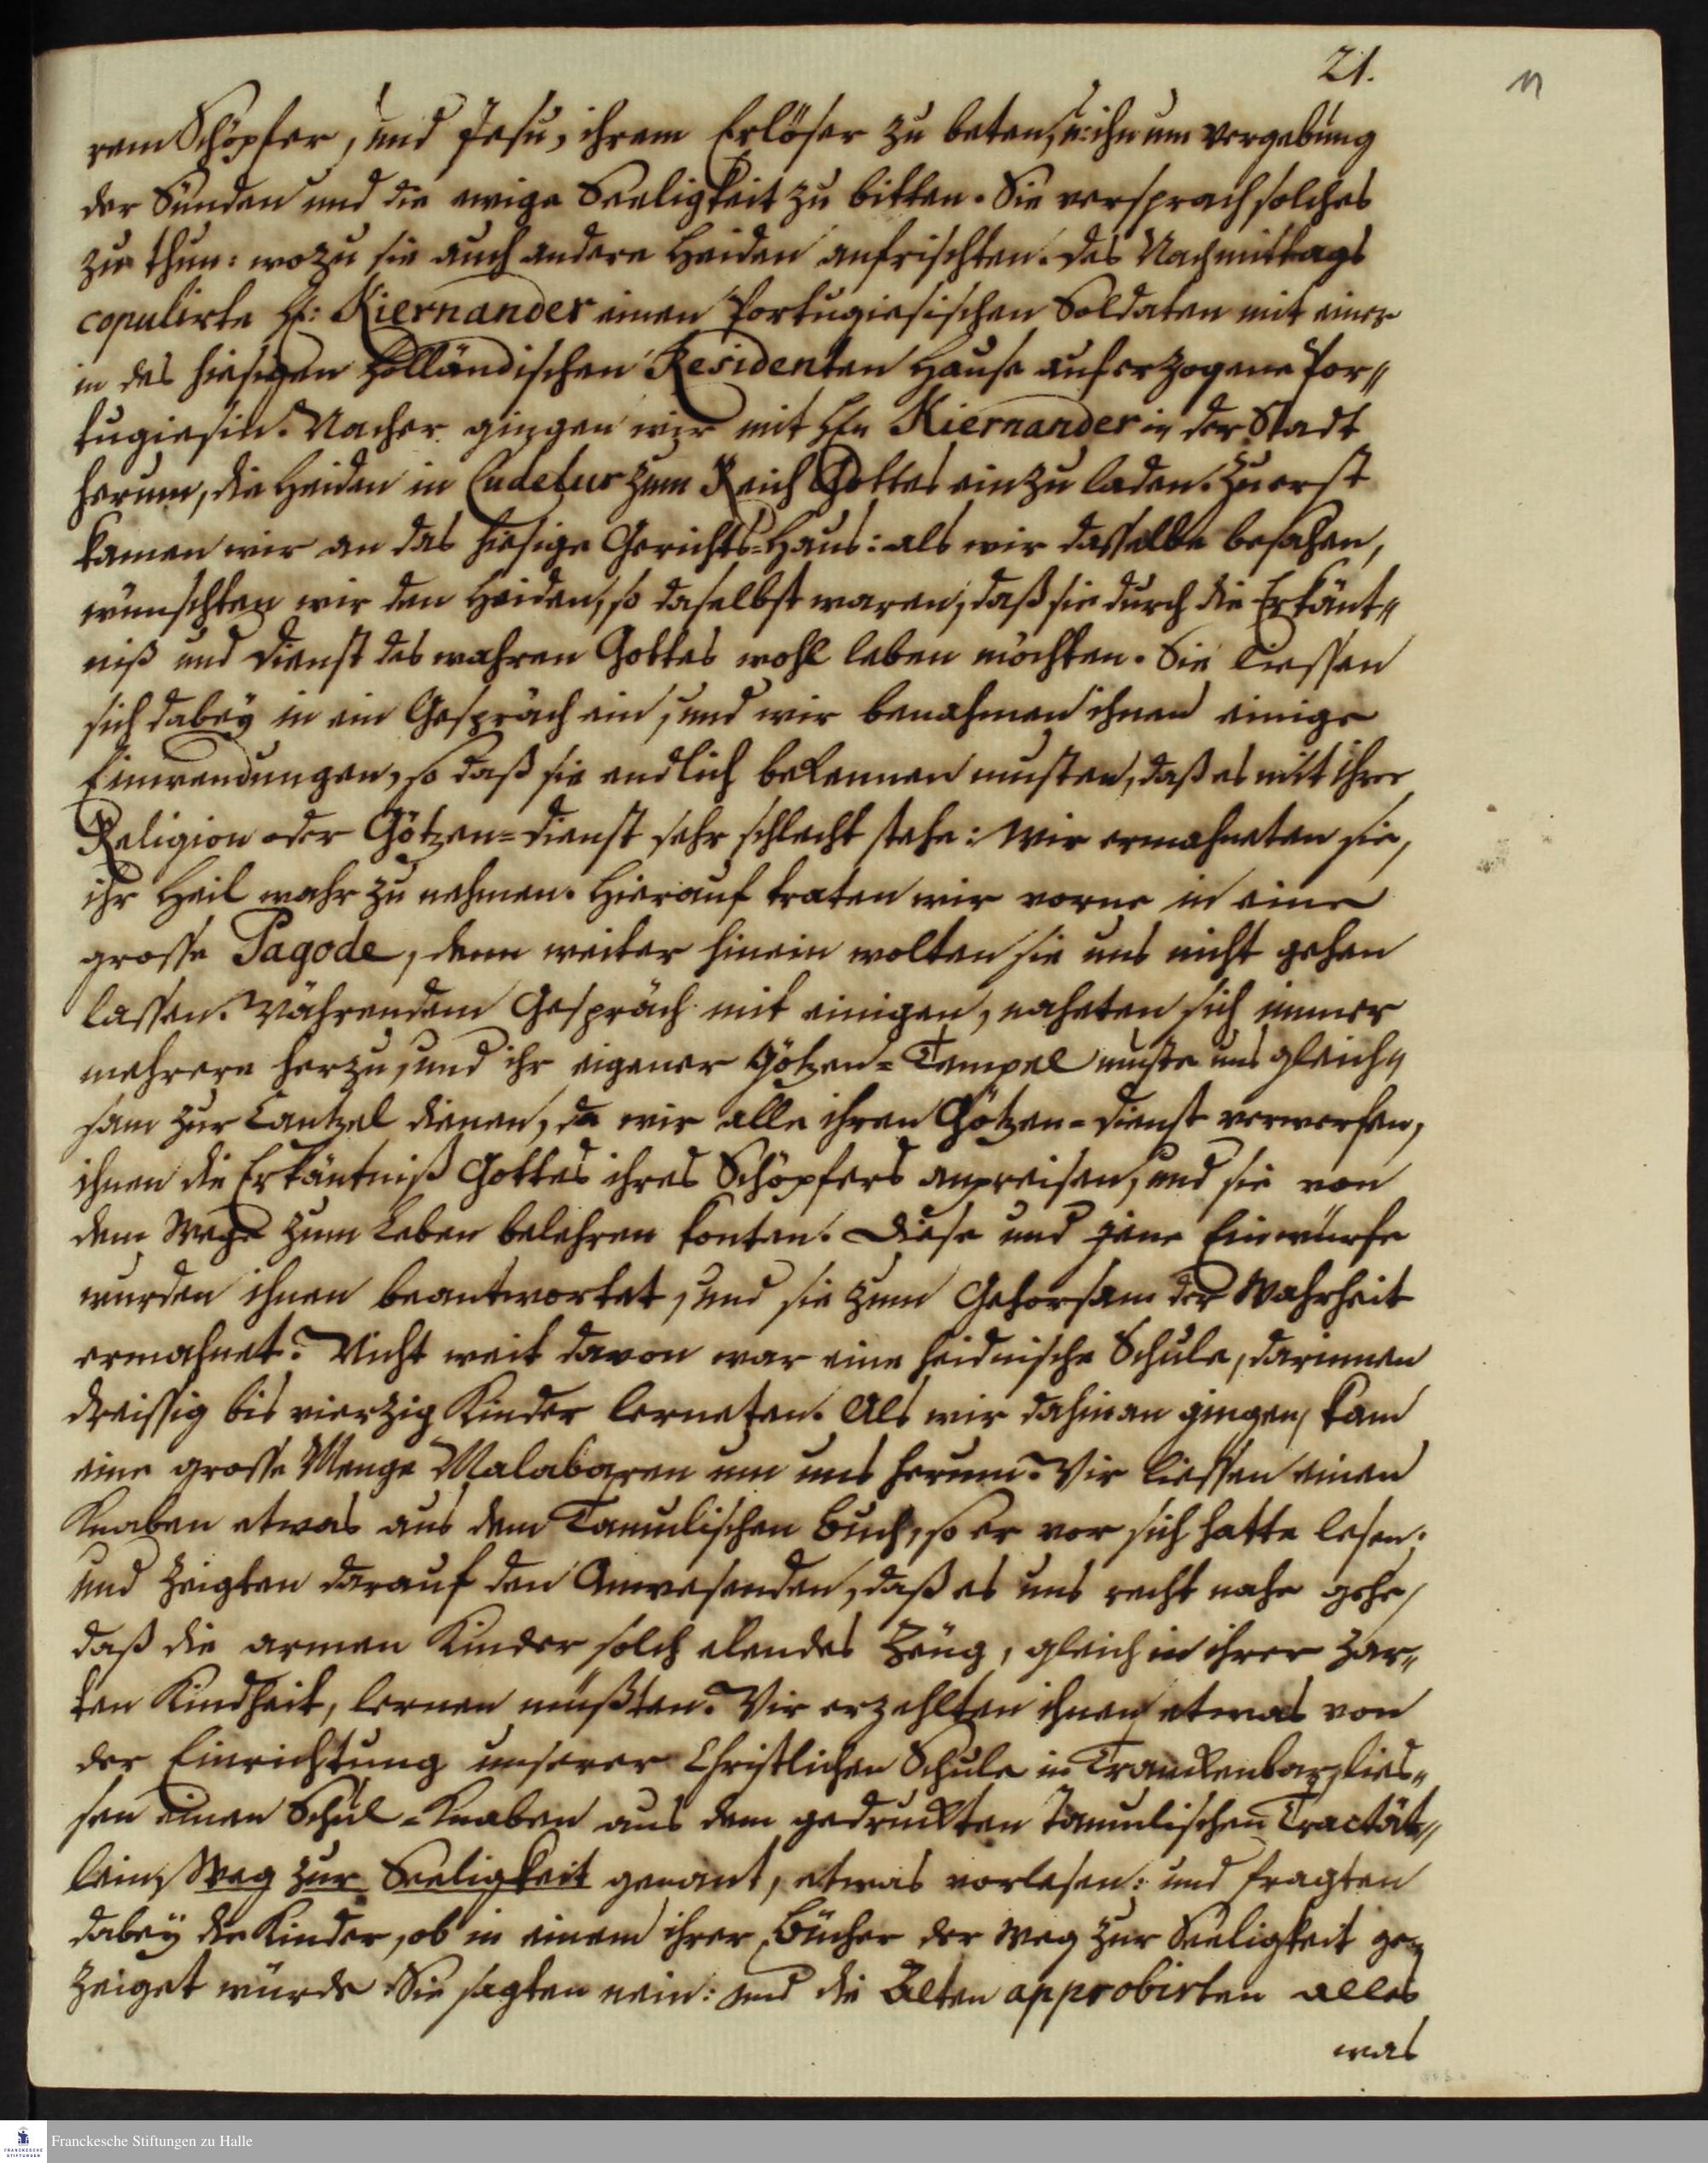 21.
11
rem Schöpfer, und Jesu, ihrem Erlöser zu beten, u: ihn um Vergebung
der Sünden und die ewige Seeligkeit zu bitten. Sie versprach solches
zu thun: wozu sie auch andere Heiden anfrischten. Des Nachmittags
copulirte H: Kiernander einen Portugiesischen Soldaten mit einer
in des hiesigen Holländischen Residenten Hause auferzogene Por„
tugiesin. Nacher gingen wir mit Hn Kiernander in der Stadt
herum, die Heiden in Cudelur zum Reich Gottes einzuladen. Zuerst
kamen wir an das hiesige Gerichts=Haus: als wir dasselbe besahen,
wünschten wir den Heiden, so daselbst waren, daß sie durch die Erkänt„
niß und Dienst des wahren Gottes wohl leben möchten. Sie liessen
sich dabey in ein Gespräch ein, und wir benahmen ihnen einige
Einwendungen, so daß sie endlich bekennen musten, daß es mit ihrer
Religion oder Götzen=Dienst sehr schlecht stehe: Wir ermahneten sie,
ihr Heil wahr zu nehmen. Hierauf traten wir vorne in eine
grosse Pagode, denn weiter hinein wolten sie uns nicht gehen
lassen. Währendem Gespräch mit einigen, naheten sich immer
mehrere herzu, und ihr eigener Götzen=Tempel muste uns gleich„
sam zur Cantzel dienen, da wir alle ihren Götzen=Dienst verwerfen,
ihnen die Erkäntniß Gottes ihres Schöpfers anpreisen, und sie von
dem Wege zum Leben belehren konten. Diese und jene Einwürfe
wurden ihnen beantwortet, und sie zum Gehorsam der Wahrheit
ermahnet. Nicht weit davon war eine heidnische Schule, darinnen
dreissig bis vierzig Kinder lerneten. Als wir dahinan gingen, kam
eine grosse Menge Malabaren um uns herum. Wir liessen einen
Knaben etwas aus dem Tamulischen Buch, so er vor sich hatte lesen;
und zeigten darauf den Anwesenden, daß es uns recht nahe gehe,
daß die armen Kinder solch elendes Zeug, gleich in ihrer zar„
ten Kindheit, lernen müßten. Wir erzehlten ihnen etwas von
der Einrichtung unserer Christlichen Schule in Tranckenbar, lies„
sen einen Schul=Knaben aus dem gedruckten Tamulischen Tractät„
lein, Weg zur Seeligkeit genant, etwas vorlesen: und fragten
dabey die Kinder, ob in einem ihrer Bücher der Weg zur Seeligkeit ge„
zeiget würde. Sie sagten nein: und die Alten approbirten alles
was
FRANCKESCHE
STIFTUNGEN
Franckesche Stiftungen zu Halle